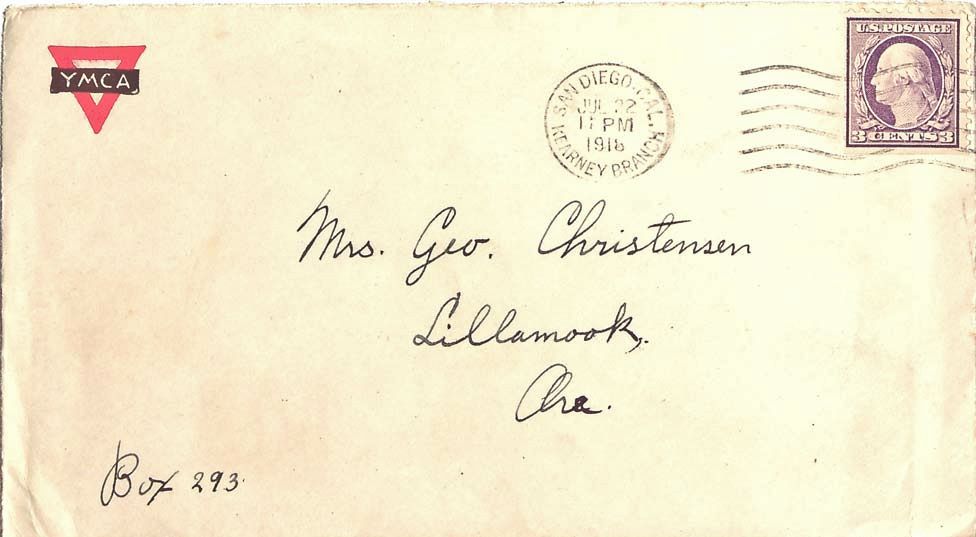 YMCA
SAN DIEGO, CAL.
JUL 22
11 PM
1918
KEARNEY BRANCH
U.S. POSTAGE
3 CENTS 3
Mrs. Geo. Christensen
Tillamook,
Ore.
Box 293